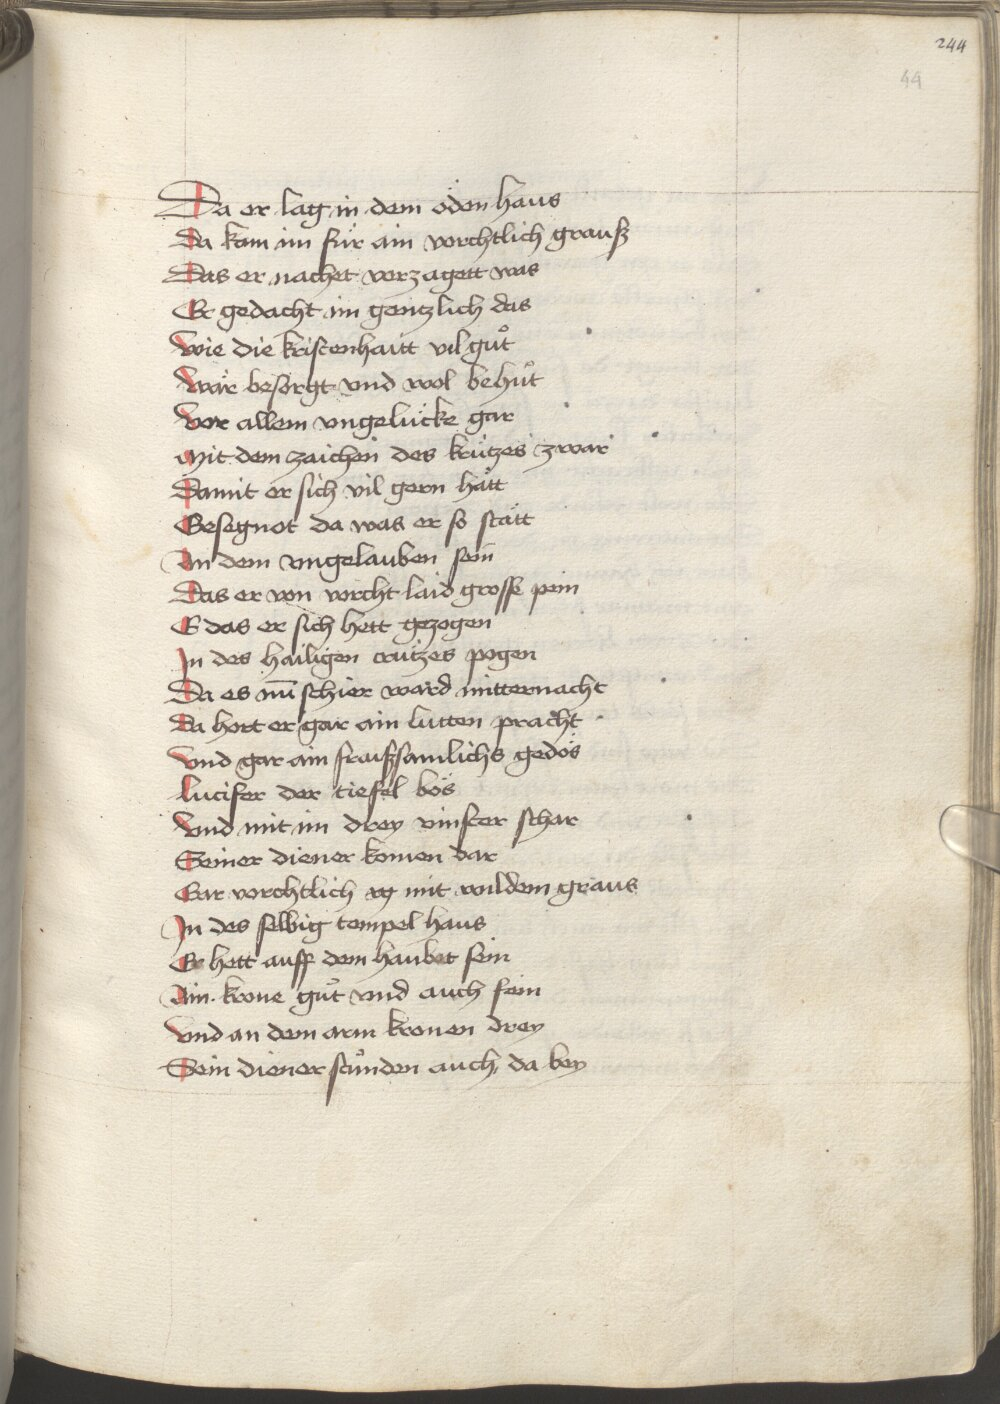 244
44
Da er lag in dem öden haus
Da kam im für ain vorchtlich grauß
Das er nachet verzagett was
Er gedacht im gentzlich das
Wie die kristenhaitt vil guͦt
Wär besorgt vnd wol behuͦt
Vor allem vngelücke gar
Mit dem zaichen des krützes zwar
Damit er sich vil gern hätt
Gesegnot da was er so stätt
An dem vngelauben sein
Das er von vorcht laid grosse pein
E das er sich hett gezogen
In des hailigen crützes pogen
Da es nuͦ schier ward mitternacht
Da hort er gar ain lutten pracht
Vnd gar ain fraißsamlichs gedös
Lucifer der tiefel bös
Vnd mit im drey vinster schar
Seiner diener komen dar
Gar vorchtlich mit wildem graus
In des selbig tempel haus
Er hett auff dem haubet sein
Ain krone guͦt vnd auch fein
Vnd an dem arm kronen drey
Sein diener stuͦnden auch da bey